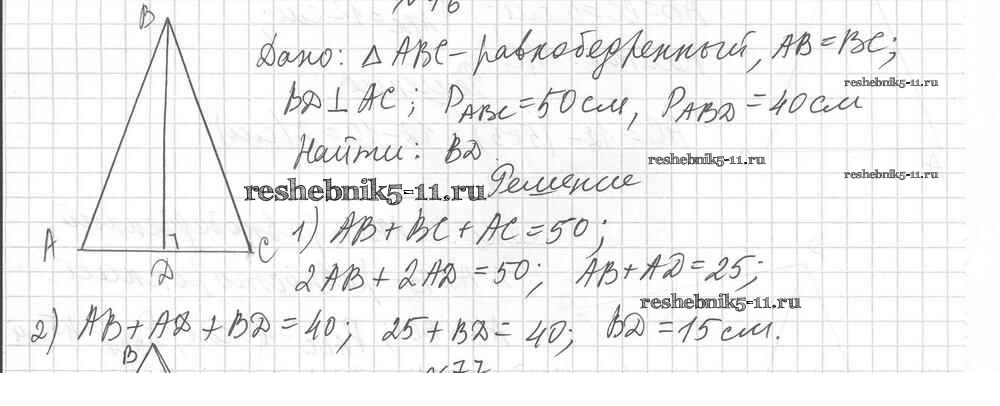 №76
B
Дано: △ ABC - равнобедренный, AB = BC;
reshebnik5-11.ru
BD ⊥ AC; P_ABC = 50 см, P_ABD = 40 см
Найти: BD.
reshebnik5-11.ru
reshebnik5-11.ru
reshebnik5-11.ru Решение
1) AB + BC + AC = 50;
A D C
2AB + 2AD = 50; AB + AD = 25;
reshebnik5-11.ru
2) AB + AD + BD = 40; 25 + BD = 40; BD = 15 см.
B
№77